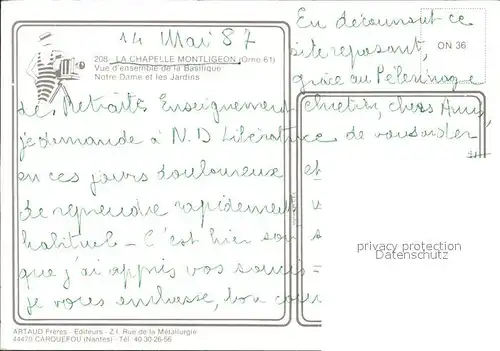 14 Mai 87
En découvrant ce
site reposant,
grâce au Pèlerinage
ON 36
208 - LA CHAPELLE MONTLIGEON (Orne-61)
Vue d'ensemble de la Basilique
Notre Dame et les Jardins
de Retraités Enseignement Chrétien, chers Amis,
je demande à N.D Libératrice de vous aider
en ces jours douloureux et
de reprendre rapidement
habituel - C'est hier soir
que j'ai appris vos soucis =
Je vous embrasse, bon cour
privacy protection
DATENSCHUTZ
ARTAUD Frères - Editeurs - Z.I. Rue de la Métallurgie
44470 CARQUEFOU (Nantes) - Tél 40.30.26-56